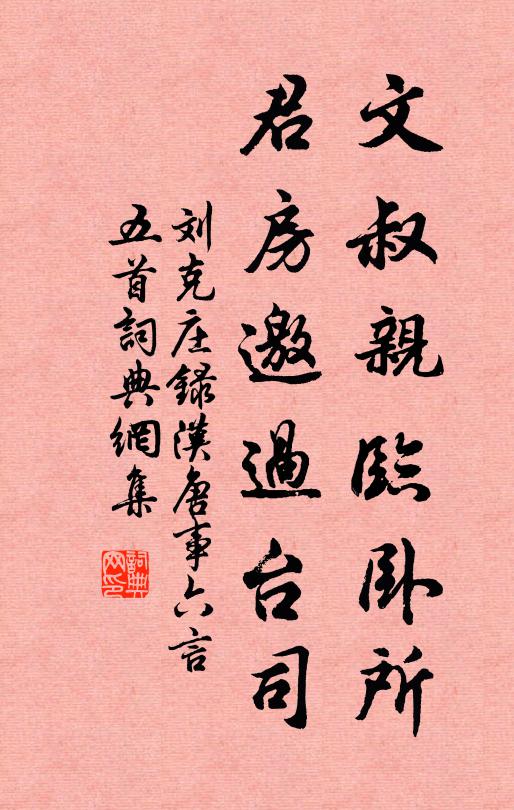 文叔親臨卧所
君房邀過台司
刘克庄録漢唐事六言
五首詞典網集
詞典
网印